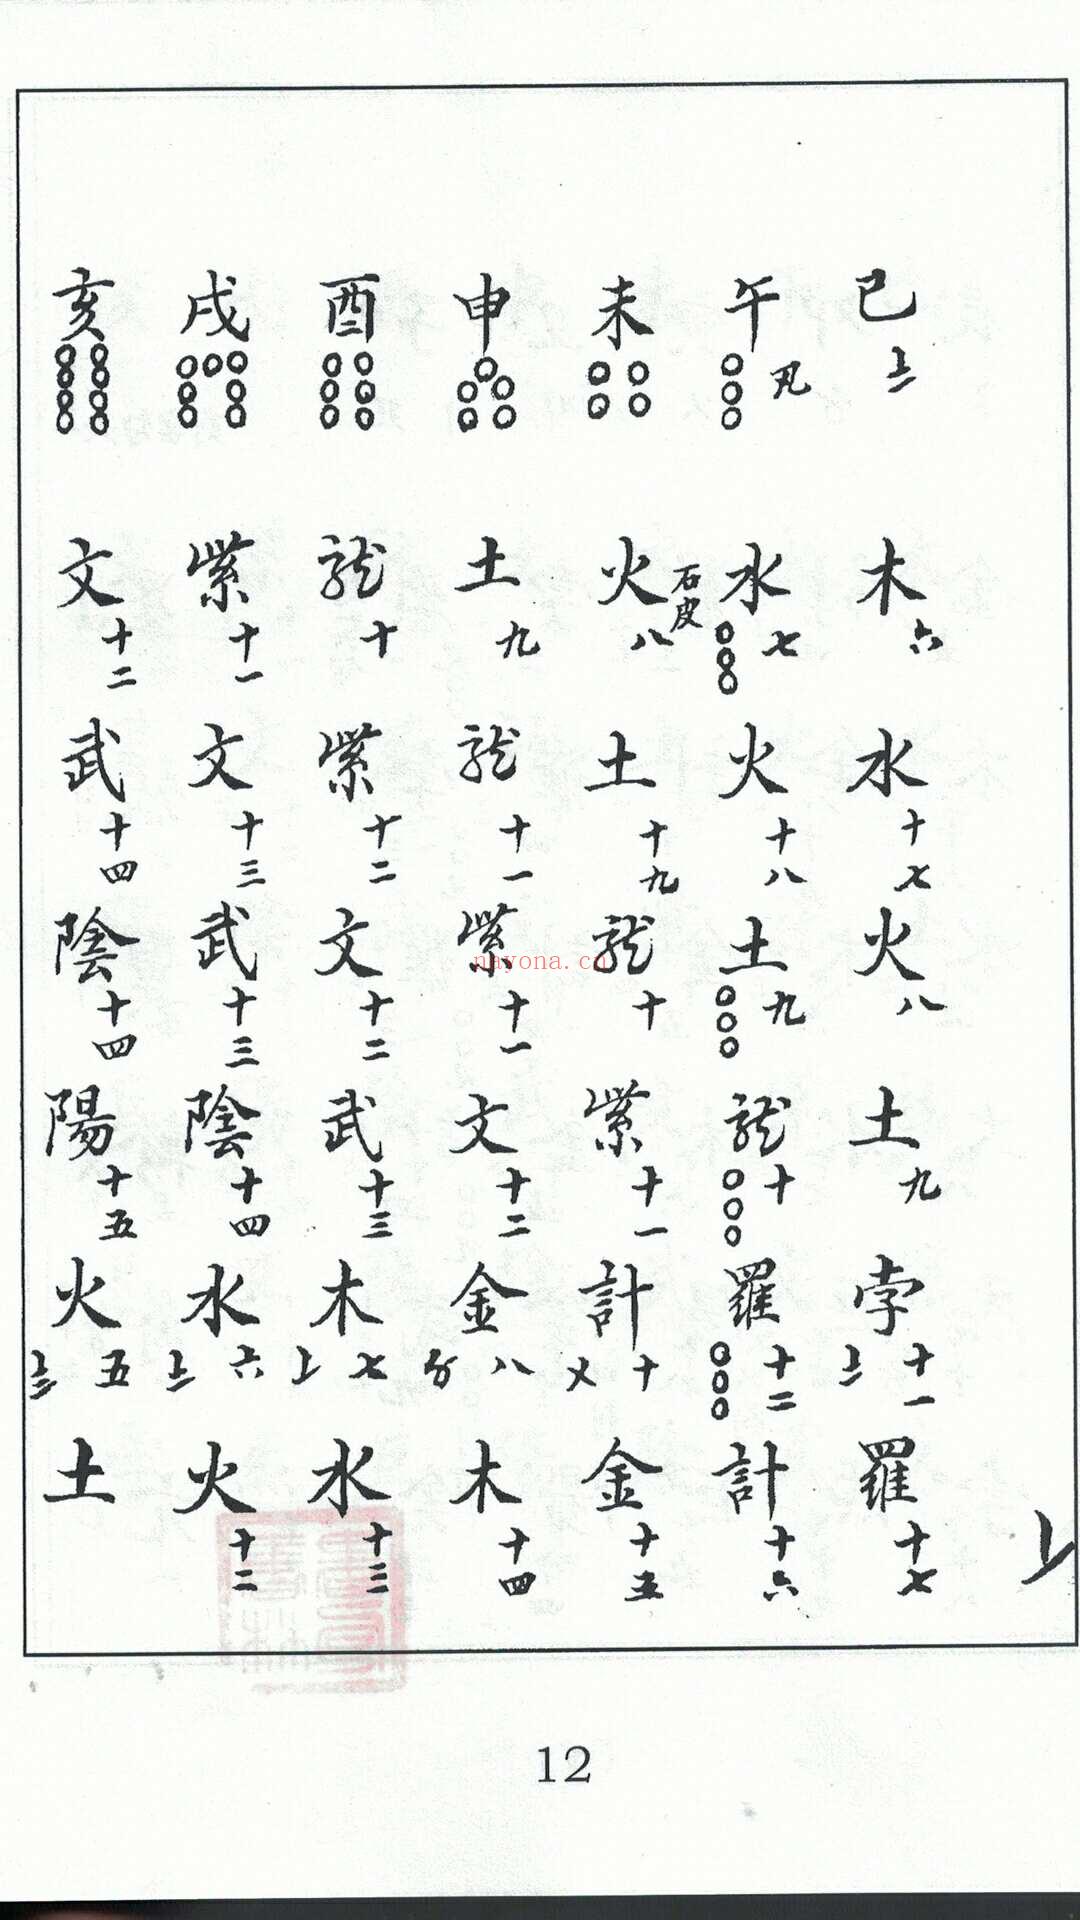 巳 上二 木 六 水 十七 火 八 土 九 孛 十一 上二 羅 十七
午 水 七 火 十八 土 九 龍 十 羅 十二 計 十六
石皮
未 火 八 土 十九 龍 十 紫 十一 計 十 金 十五
申 土 九 龍 十一 紫 十一 文 十二 金 八 木 十四
酉 龍 十 紫 十二 文 十二 武 十三 木 七 上 水 十三
戌 紫 十一 文 十三 武 十三 陰 十四 水 六 上二 火 十二
亥 文 十二 武 十四 陰 十四 陽 十五 火 五 上三 土
nayona.cn
12